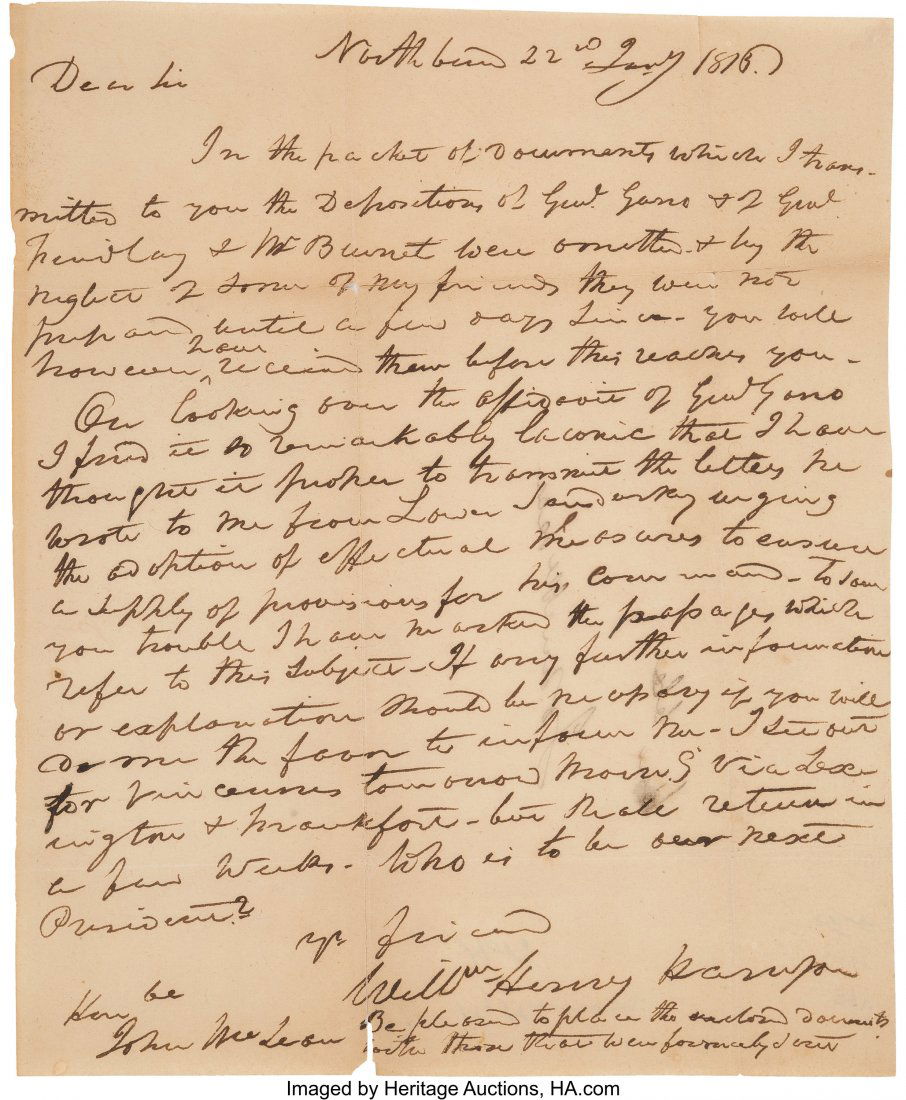 North bend 22nd Jany 1816.
Dear Sir
In the packet of Documents which I trans-
mitted to you the Depositions of Genl. Gano & of Genl
Findlay & Mr Burnet were omitted & by the
neglect of some of my friends they were not
prepared until a few days since - you will
however have received them before this reaches you -
On looking over the affidavit of Genl Gano
I find it so remarkably laconic that I have
thought it proper to transmit the letters he
wrote to me from Lower Sandusky urging
the adoption of effectual measures to ensure
a supply of provisions for his command - to save
you trouble I have marked the passages which
refer to this subject - If any further information
or explanation should be necessary if you will
do me the favor to inform me - I set out
for Vincennes tomorrow morng via Lex
ington & Frankfort - but shall return in
a few weeks - Who is to be our next
President?
yr friend
Willm Henry Harrison
Honble
John McLean
Be pleased to place the enclosed documts
with those that were formerly sent
Imaged by Heritage Auctions, HA.com